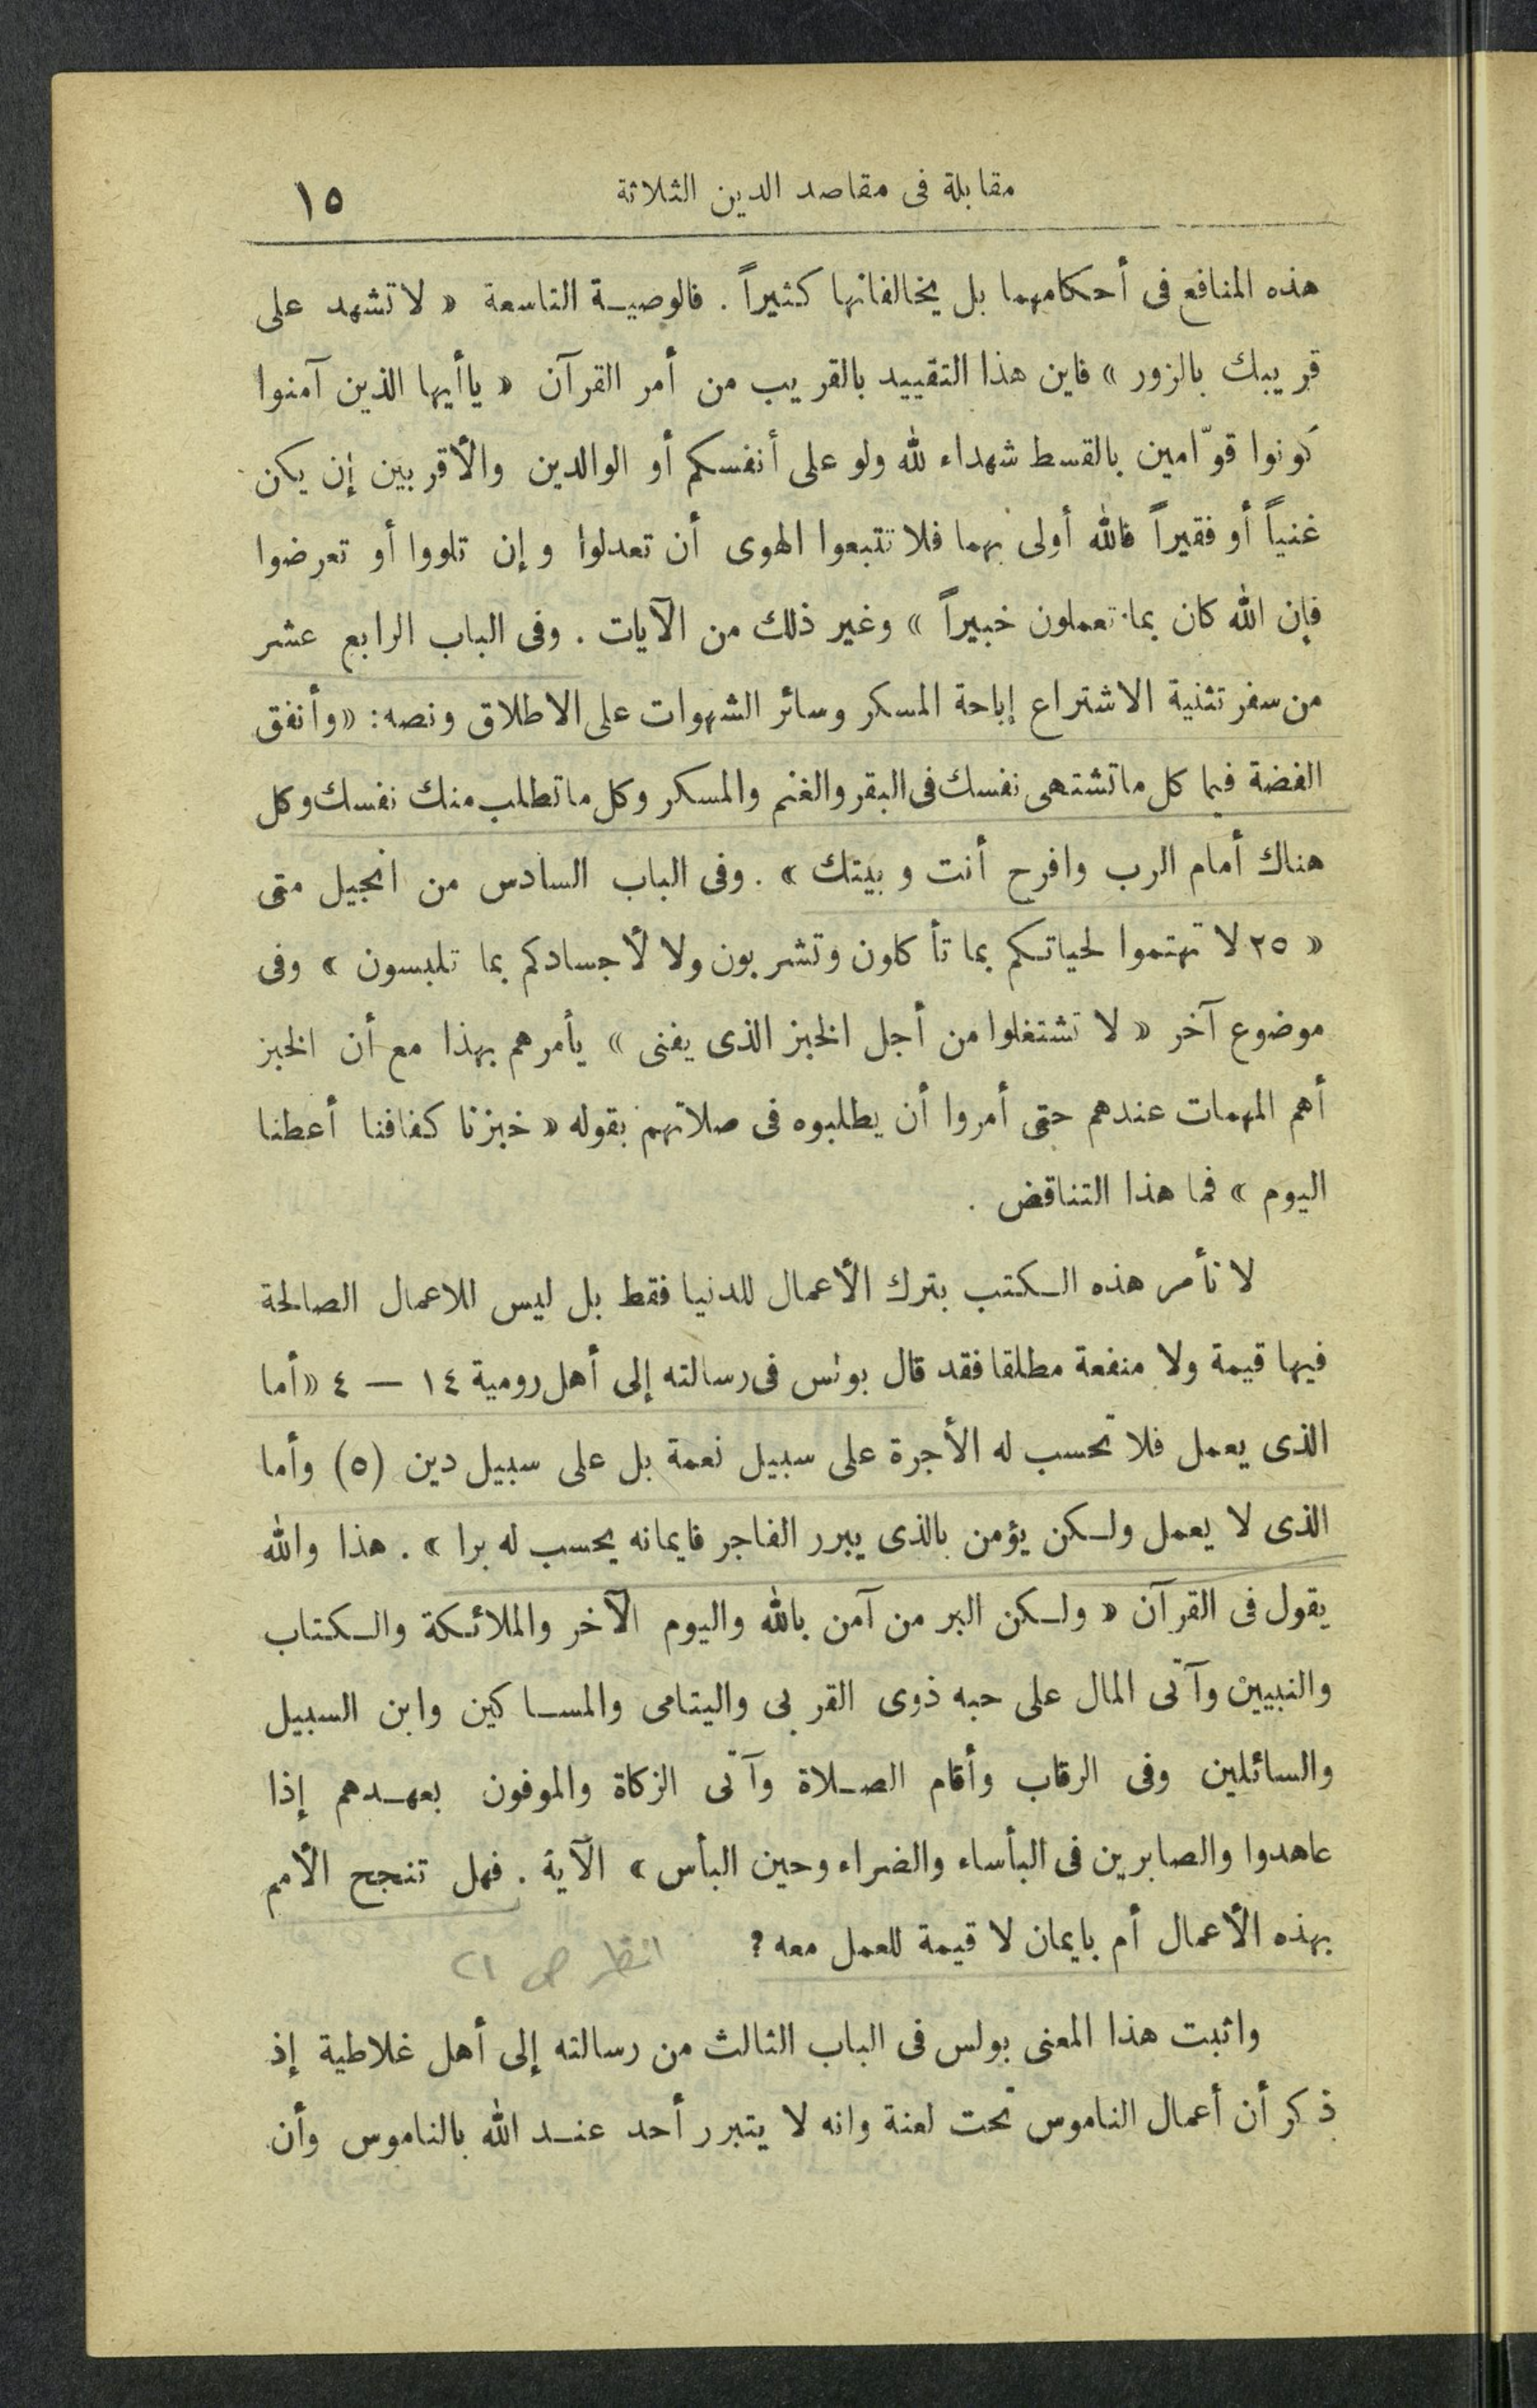 مقابلة فى مقاصد الدين الثلاثة ١٥
هذه المنافع فى أحكامهما بل يخالفانها كثيراً . فالوصية التاسعة « لا تشهد على
قريبك بالزور » فاين هذا التقييد بالقريب من أمر القرآن « ياأيها الذين آمنوا
كونوا قوّامين بالقسط شهداء لله ولو على أنفسكم أو الوالدين والأقربين إن يكن
غنياً أو فقيراً فالله أولى بهما فلا تتبعوا الهوى أن تعدلوا وإن تلووا أو تعرضوا
فإن الله كان بما تعملون خبيراً » وغير ذلك من الآيات . وفى الباب الرابع عشر
من سفر تثنية الاشتراع إباحة المسكر وسائر الشهوات على الاطلاق ونصه : « وأنفق
الفضة فيما كل ما تشتهى نفسك فى البقر والغنم والمسكر وكل ما تطلب منك نفسك وكل
هناك أمام الرب وافرح أنت وبيتك » . وفى الباب السادس من انجيل متى
« ٢٥ لا تهتموا لحياتكم بما تأكلون وتشربون ولا لأجسادكم بما تلبسون » وفى
موضوع آخر « لا تشتغلوا من أجل الخبز الذى يفنى » يأمرهم بهذا مع أن الخبز
أهم المهمات عندهم حتى أمروا أن يطلبوه فى صلاتهم بقوله « خبزنا كفافنا أعطنا
اليوم » فما هذا التناقض .
لا تأمر هذه الكتب بترك الأعمال للدنيا فقط بل ليس للاعمال الصالحة
فيها قيمة ولا منفعة مطلقا فقد قال بولس فى رسالته إلى أهل رومية ١٤ — ٤ « أما
الذى يعمل فلا تحسب له الأجرة على سبيل نعمة بل على سبيل دين (٥) وأما
الذى لا يعمل ولكن يؤمن بالذى يبرر الفاجر فايمانه يحسب له برا » . هذا والله
يقول فى القرآن « ولكن البر من آمن بالله واليوم الآخر والملائكة والكتاب
والنبيين وآتى المال على حبه ذوى القربى واليتامى والمساكين وابن السبيل
والسائلين وفى الرقاب وأقام الصلاة وآتى الزكاة والموفون بعهدهم إذا
عاهدوا والصابرين فى البأساء والضراء وحين البأس » الآية . فهل تنجح الأمم
بهذه الأعمال أم بايمان لا قيمة للعمل معه ؟ انظر ص ٢١
واثبت هذا المعنى بولس فى الباب الثالث من رسالته إلى أهل غلاطية إذ
ذكر أن أعمال الناموس تحت لعنة وانه لا يتبرر أحد عند الله بالناموس وأن